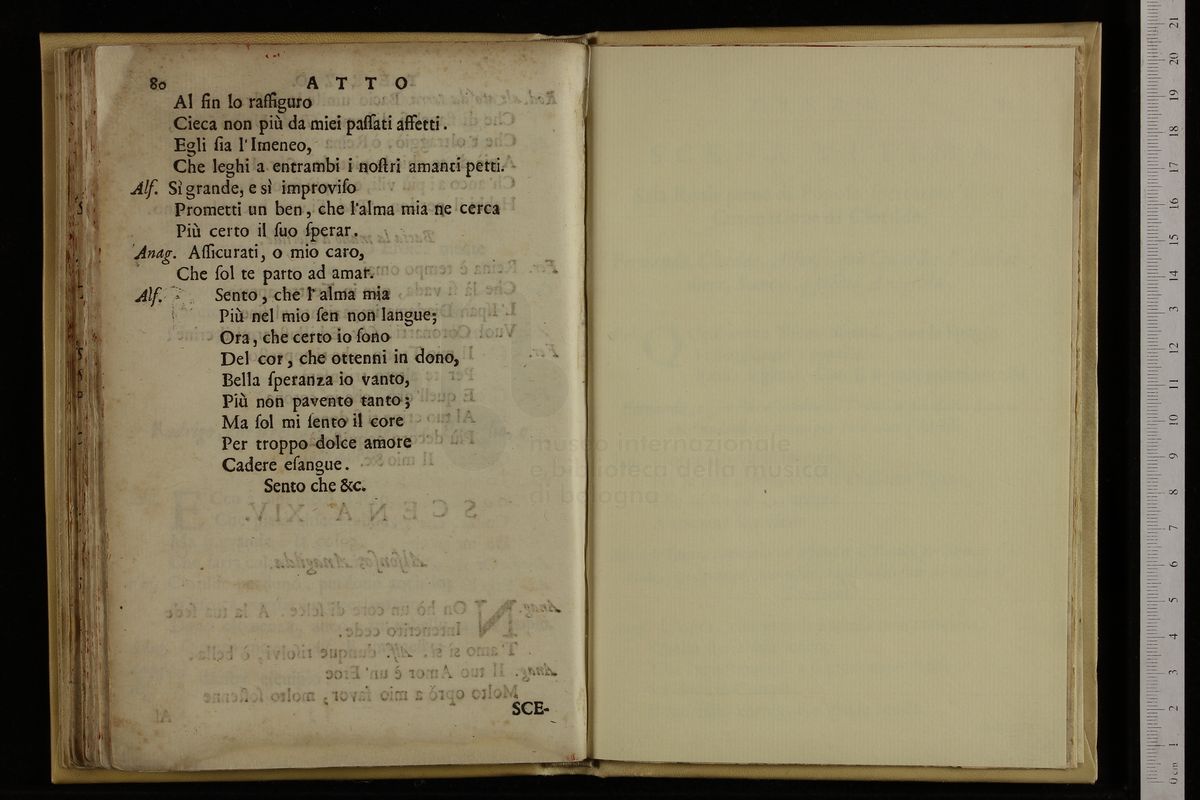 80 ATTO
Al fin lo raffiguro
Cieca non più da miei paſſati affetti.
Egli ſia l'Imeneo,
Che leghi a entrambi i noſtri amanti petti.
Alf. Sì grande, e sì improviſo
Prometti un ben, che l'alma mia ne cerca
Più certo il ſuo ſperar.
Anag. Aſſicurati, o mio caro,
Che ſol te parto ad amar.
Alf. Sento, che l'alma mia
Più nel mio ſen non langue;
Ora, che certo io ſono
Del cor, che ottenni in dono,
Bella ſperanza io vanto,
Più non pavento tanto;
Ma ſol mi ſento il core
Per troppo dolce amore
Cadere eſangue.
Sento che &c.
SCE-
museo internazionale
e biblioteca della musica
di bologna